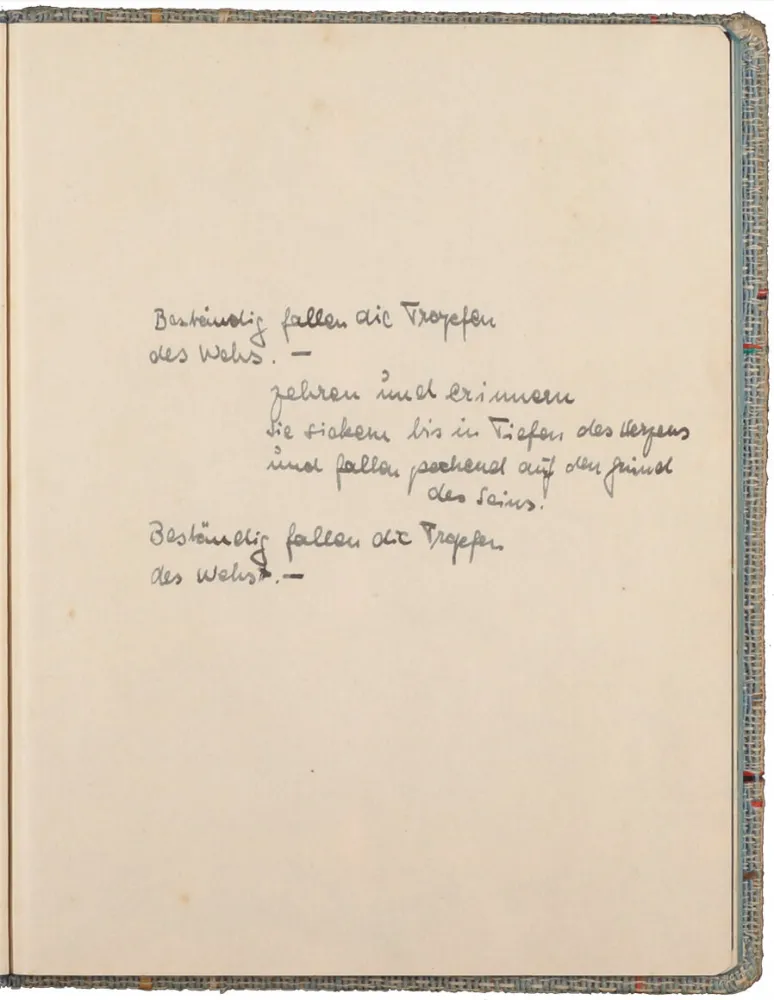 Beständig fallen die Tropfen
des Wehs. —
zehren und erinnern
Sie sickern bis in Tiefen des Herzens
und fallen pochend auf den Grund
des Seins.
Beständig fallen die Tropfen
des Wehs. —